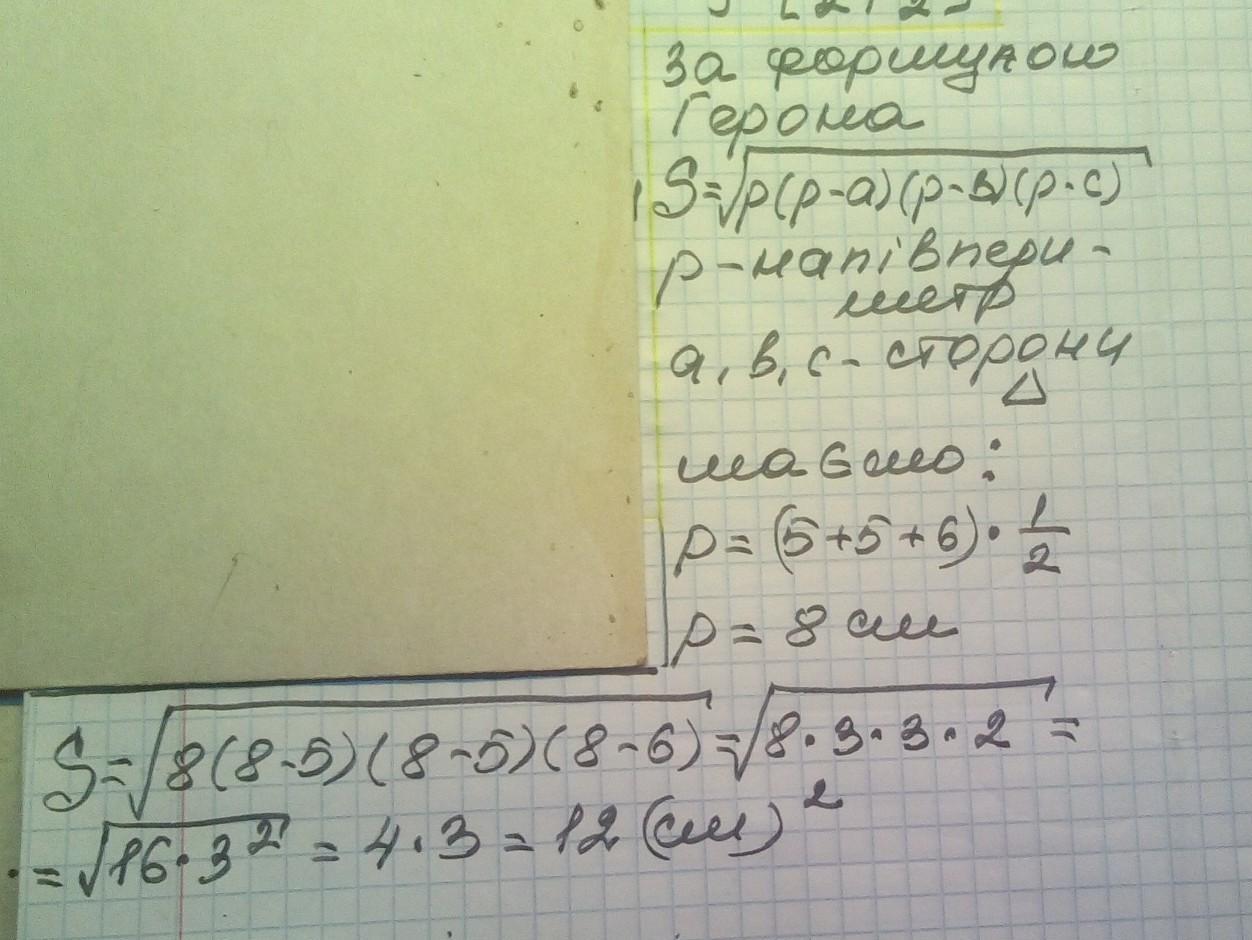 За формулою
Герона
S=√p(p-a)(p-в)(p-c)
p-напівпери-
метр
a, в, c- сторони
△
маємо:
p = (5+5+6)·1/2
p = 8 см
S=√8(8-5)(8-5)(8-6)=√8·3·3·2 =
=√16·3² = 4·3 = 12 (см)²